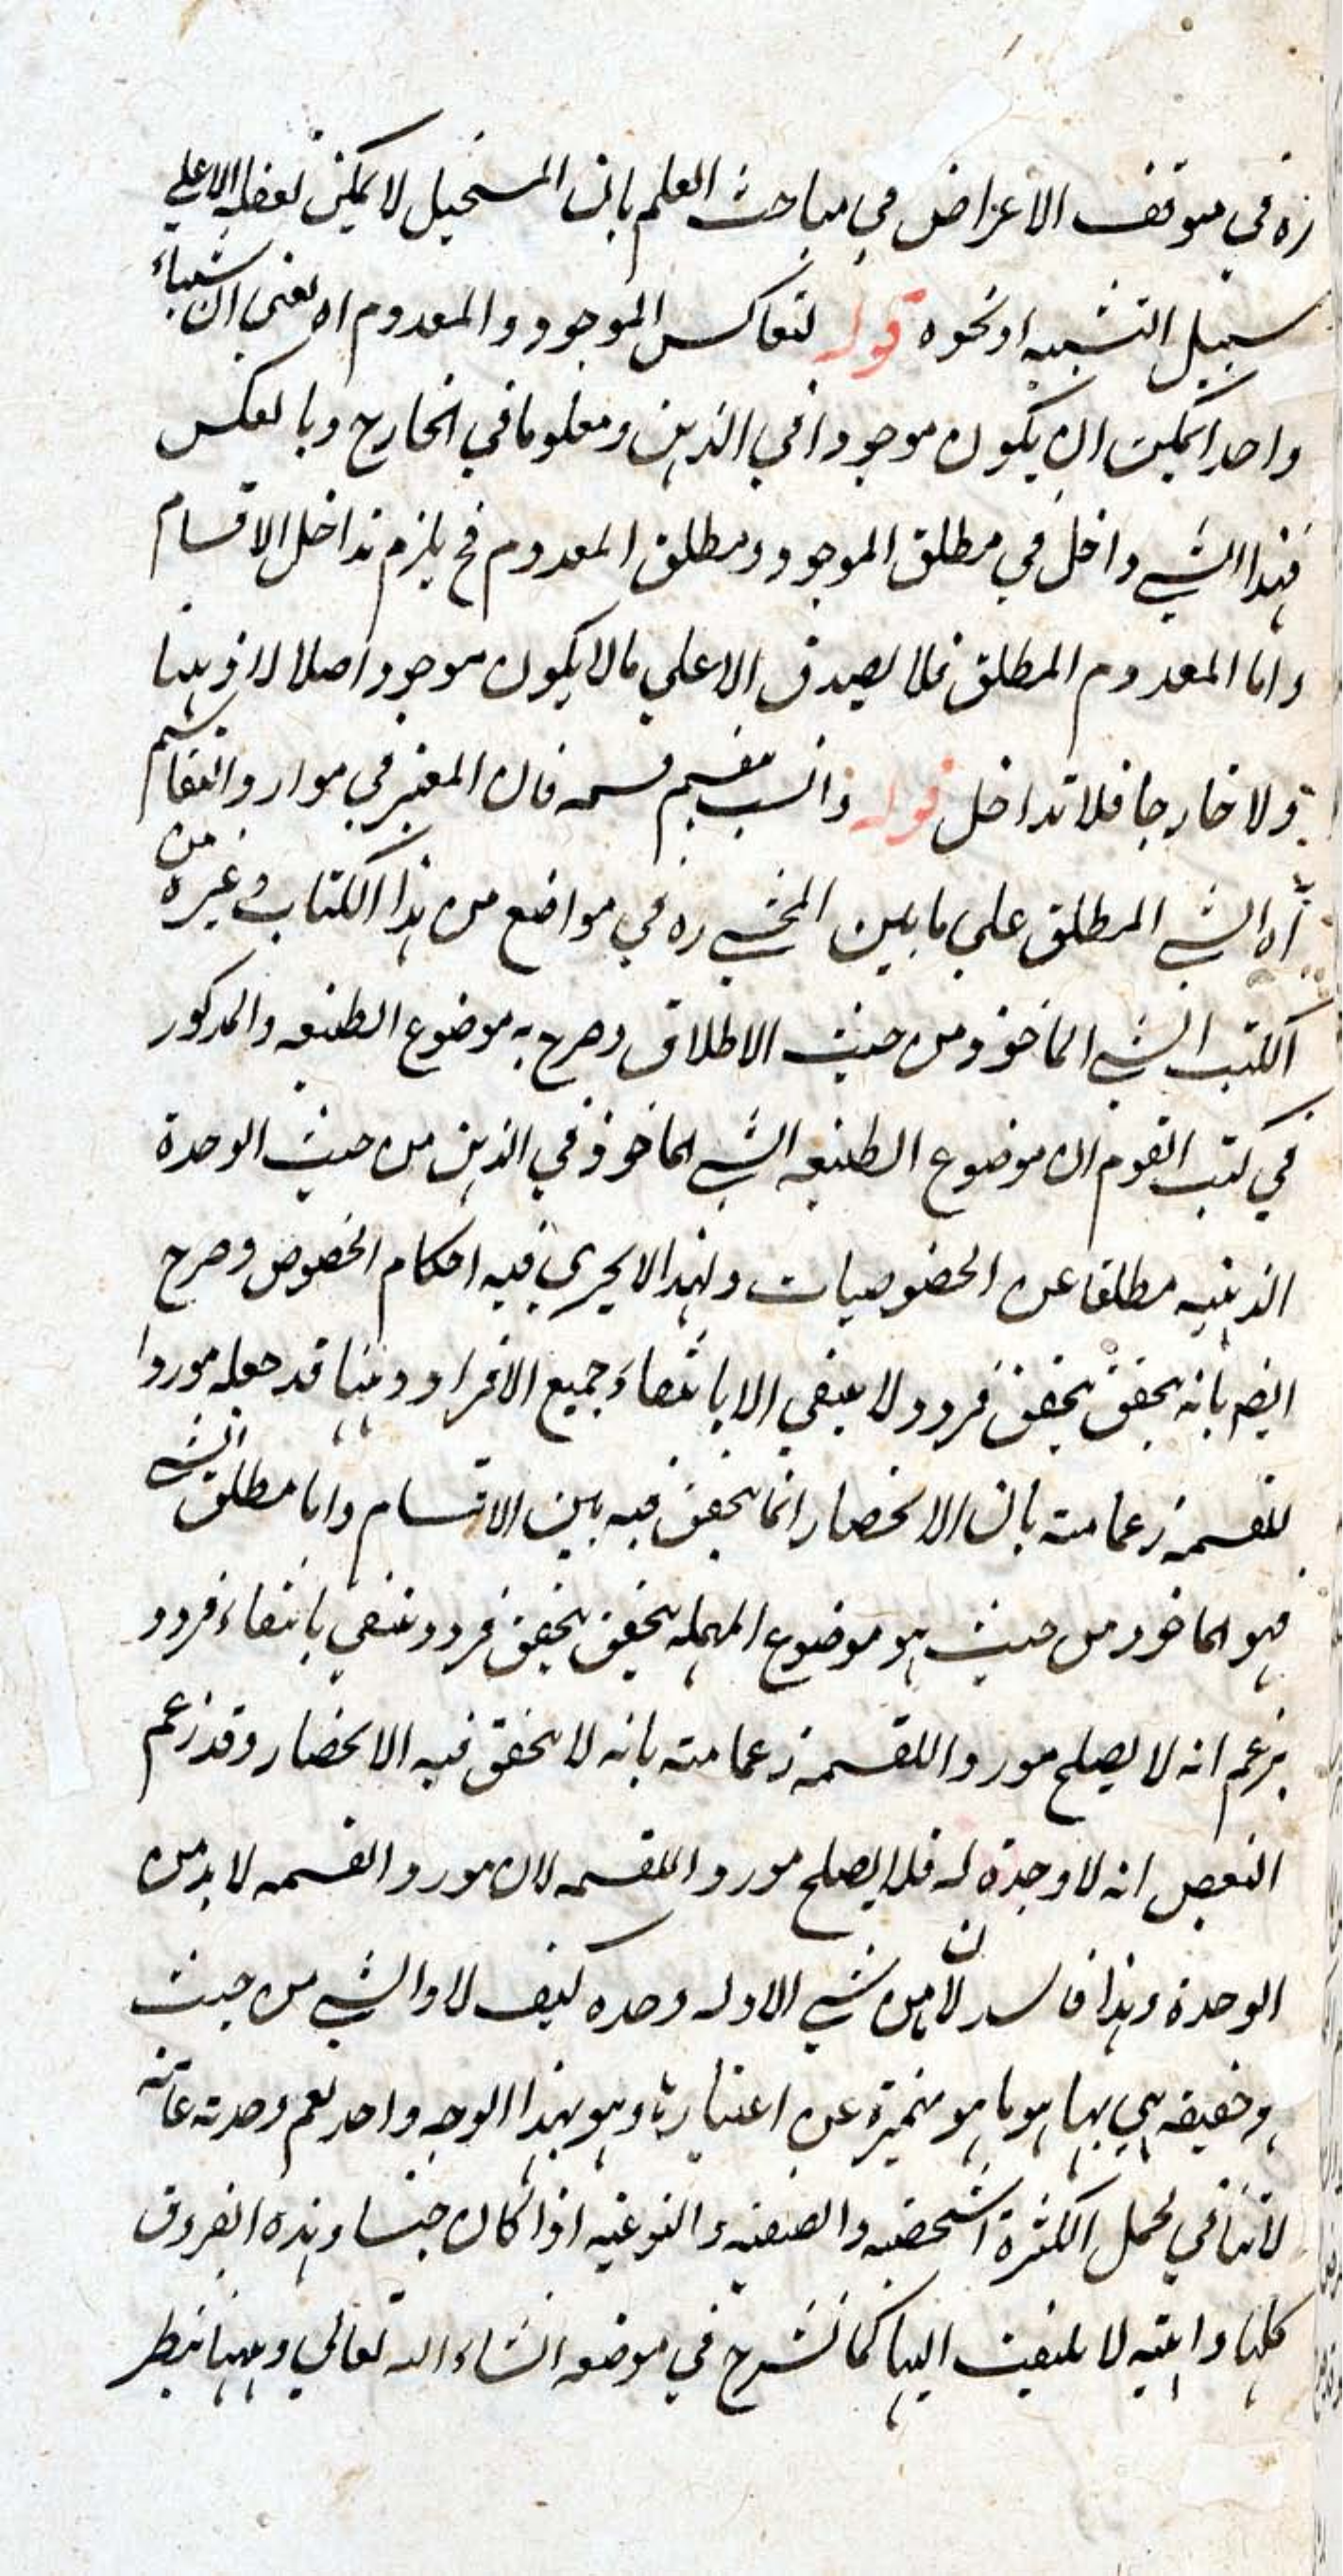 ره في موقف الاعراض في مباحث العلم بان المستحيل لا يمكن تعقله الا علي
سبيل التشبيه او نحوه قوله لتعاكس الموجود والمعدوم اه يعني ان شياء
واحدا يمكن ان يكون موجودا في الذهن ومعدوما في الخارج وبالعكس
فهذا الشي داخل في مطلق الموجود ومطلق المعدوم فح يلزم تداخل الاقسام
واما المعدوم المطلق فلا يصدق الا علي ما لا يكون موجودا اصلا لا ذهنا
ولا خارجا فلا تداخل قوله وانسب مقسم قسمه فان المعتبر في موارد التقاسيم
اه الشي المطلق علي ما بين المحشي ره في مواضع من هذا الكتاب وغيره من
الكتب الشي الماخوذ من حيث الاطلاق وصرح به موضوع الطبعيه والمذكور
في كتب القوم ان موضوع الطبعيه الشي الماخوذ في الذهن من حيث الوحدة
الذهنيه مطلقا عن الخصوصيات ولهذا لا يجري فيه احكام الخصوص وصرح
ايضم بانه يحقق بتحقق فرد ولا ينتفي الا بانتفاء جميع الافراد وههنا قد جعله موردا
للقسمه زعما منه بان الانحصار انما يتحقق فيه بين الاقسام واما مطلق الشي
فهو الماخوذ من حيث هو موضوع المهمله يتحقق بتحقق فرد وينتفي بانتفاء فرد و
يزعم انه لا يصلح موردا للقسمه زعما منه بانه لا يتحقق فيه الانحصار وقد زعم
البعض انه لا وحدة له فلا يصلح موردا للقسمه لان مورد القسمه لا بد من
الوحدة وهذا فاسد لان ما من شي الا وله وحده كيف لا والشي من حيث
هو حقيقه هي بها هو ما هو متميزة عن اعتبارها وهو بهذا الوجه واحد نعم وحدته عامة
لا تنافي لحمل الكثرة الشخصيه والصنفيه والنوعيه اذا كان جنسا وهذه الفروق
كلها واهيه لا يلتفت اليها كما نشرح في موضعه انشاء الله تعالي وههنا ينظر